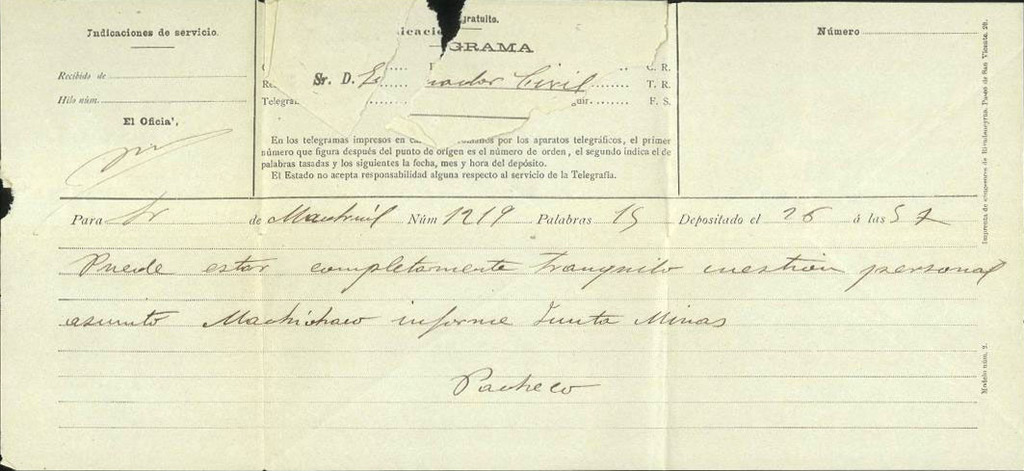 Indicaciones de servicio.
Recibido de
Hilo núm.
El Oficial,
gratuito.
icaci
GRAMA
Sr. D. ador Civil
C. R.
T. R.
Telegra
F. S.
En los telegramas impresos en por los aparatos telegráficos, el primer
número que figura después del punto de origen es el número de orden, el segundo indica el de
palabras tasadas y los siguientes la fecha, mes y hora del depósito.
El Estado no acepta responsabilidad alguna respecto al servicio de la Telegrafía.
Número
Para Sr de Núm 1219 Palabras 15 Depositado el 26 á las 5
Puede estar completamente tranquilo cuestion personal
asunto Machichaco informe Junta Minas
Pacheco
Imprenta de sucesores de Rivadeneyra, Paseo de San Vicente, 20.
Modelo núm. 2.